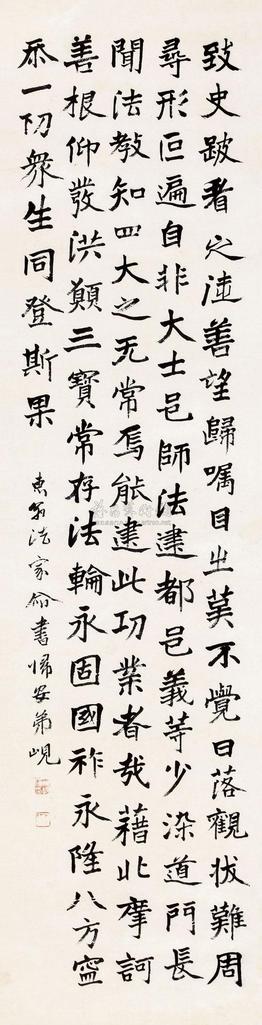 致史跛者之達善望歸嘱目之莫不覺日落觀状難周
尋形叵遍自非大士邑師法建都邑義等少染道門長
聞法教知四大之无常焉能建此功業者哉藉此摩訶
善根仰發洪願三寶常存法輪永固國祚永隆八方寍
泰一切衆生同登斯果
法家命書歸安弟峴